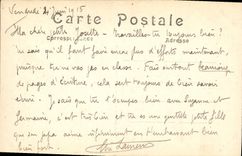 Vendredi 4 Juin 1915
Carte Postale
CORRESPONDANCE
ADRESSE
Ma chère petite Travailles tu toujours bien ?
Tu sais qu'il faut faire encore plus d'efforts maintenant,
puisque tu ne vas pas en classe. Fais surtout beaucoup
de pages d'écriture, cela sert toujours de bien savoir
écrire. Je sais que tu t'occupes bien avec Suzanne et
Germaine, c'est très bien et tu es une gentille petite fille
que son papa aime en t'embrassant bien
bien fort.